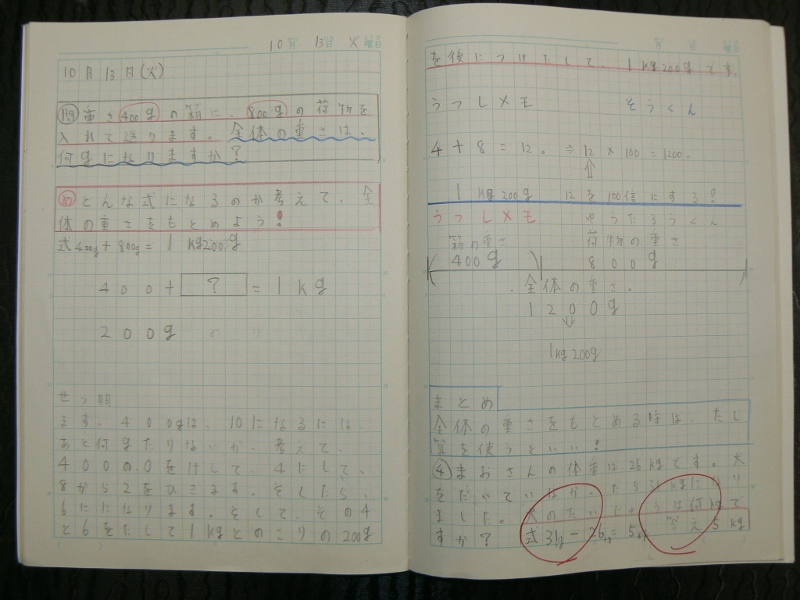 10月13日(火)
問 重さ400gの箱に、800gの荷物を
入れて送ります。全体の重さは、
何gになりますか?
め どんな式になるのか考えて、全
体の重さをもとめよう!
式400g+800g=1kg200g
400+?=1kg
200g
せつ明
まず、400gは、10になるには、
あと何gたりないか、考えて、
400の0をけして、4にして、
8から2をひきます。そしたら、
6になります。そして、その4
と6をたして1kgとのこりの200g
10月 13日 火曜日
を後につけたして、1kg200gです。
うつしメモ そうくん
4+8=12。 12×100=1200。
1kg200g 12を100倍にする!
うつしメモ ゆうたろうくん
箱の重さ 荷物の重さ
400g 800g
全体の重さ。
1200g
1kg200g
まとめ
全体の重さをもとめる時は、たし
算を使うといい!
④まおさんの体重は26kgです。犬
をだいて
ました。 は何kgで
すか? 式31kg-26kg=5kg 答え5kg